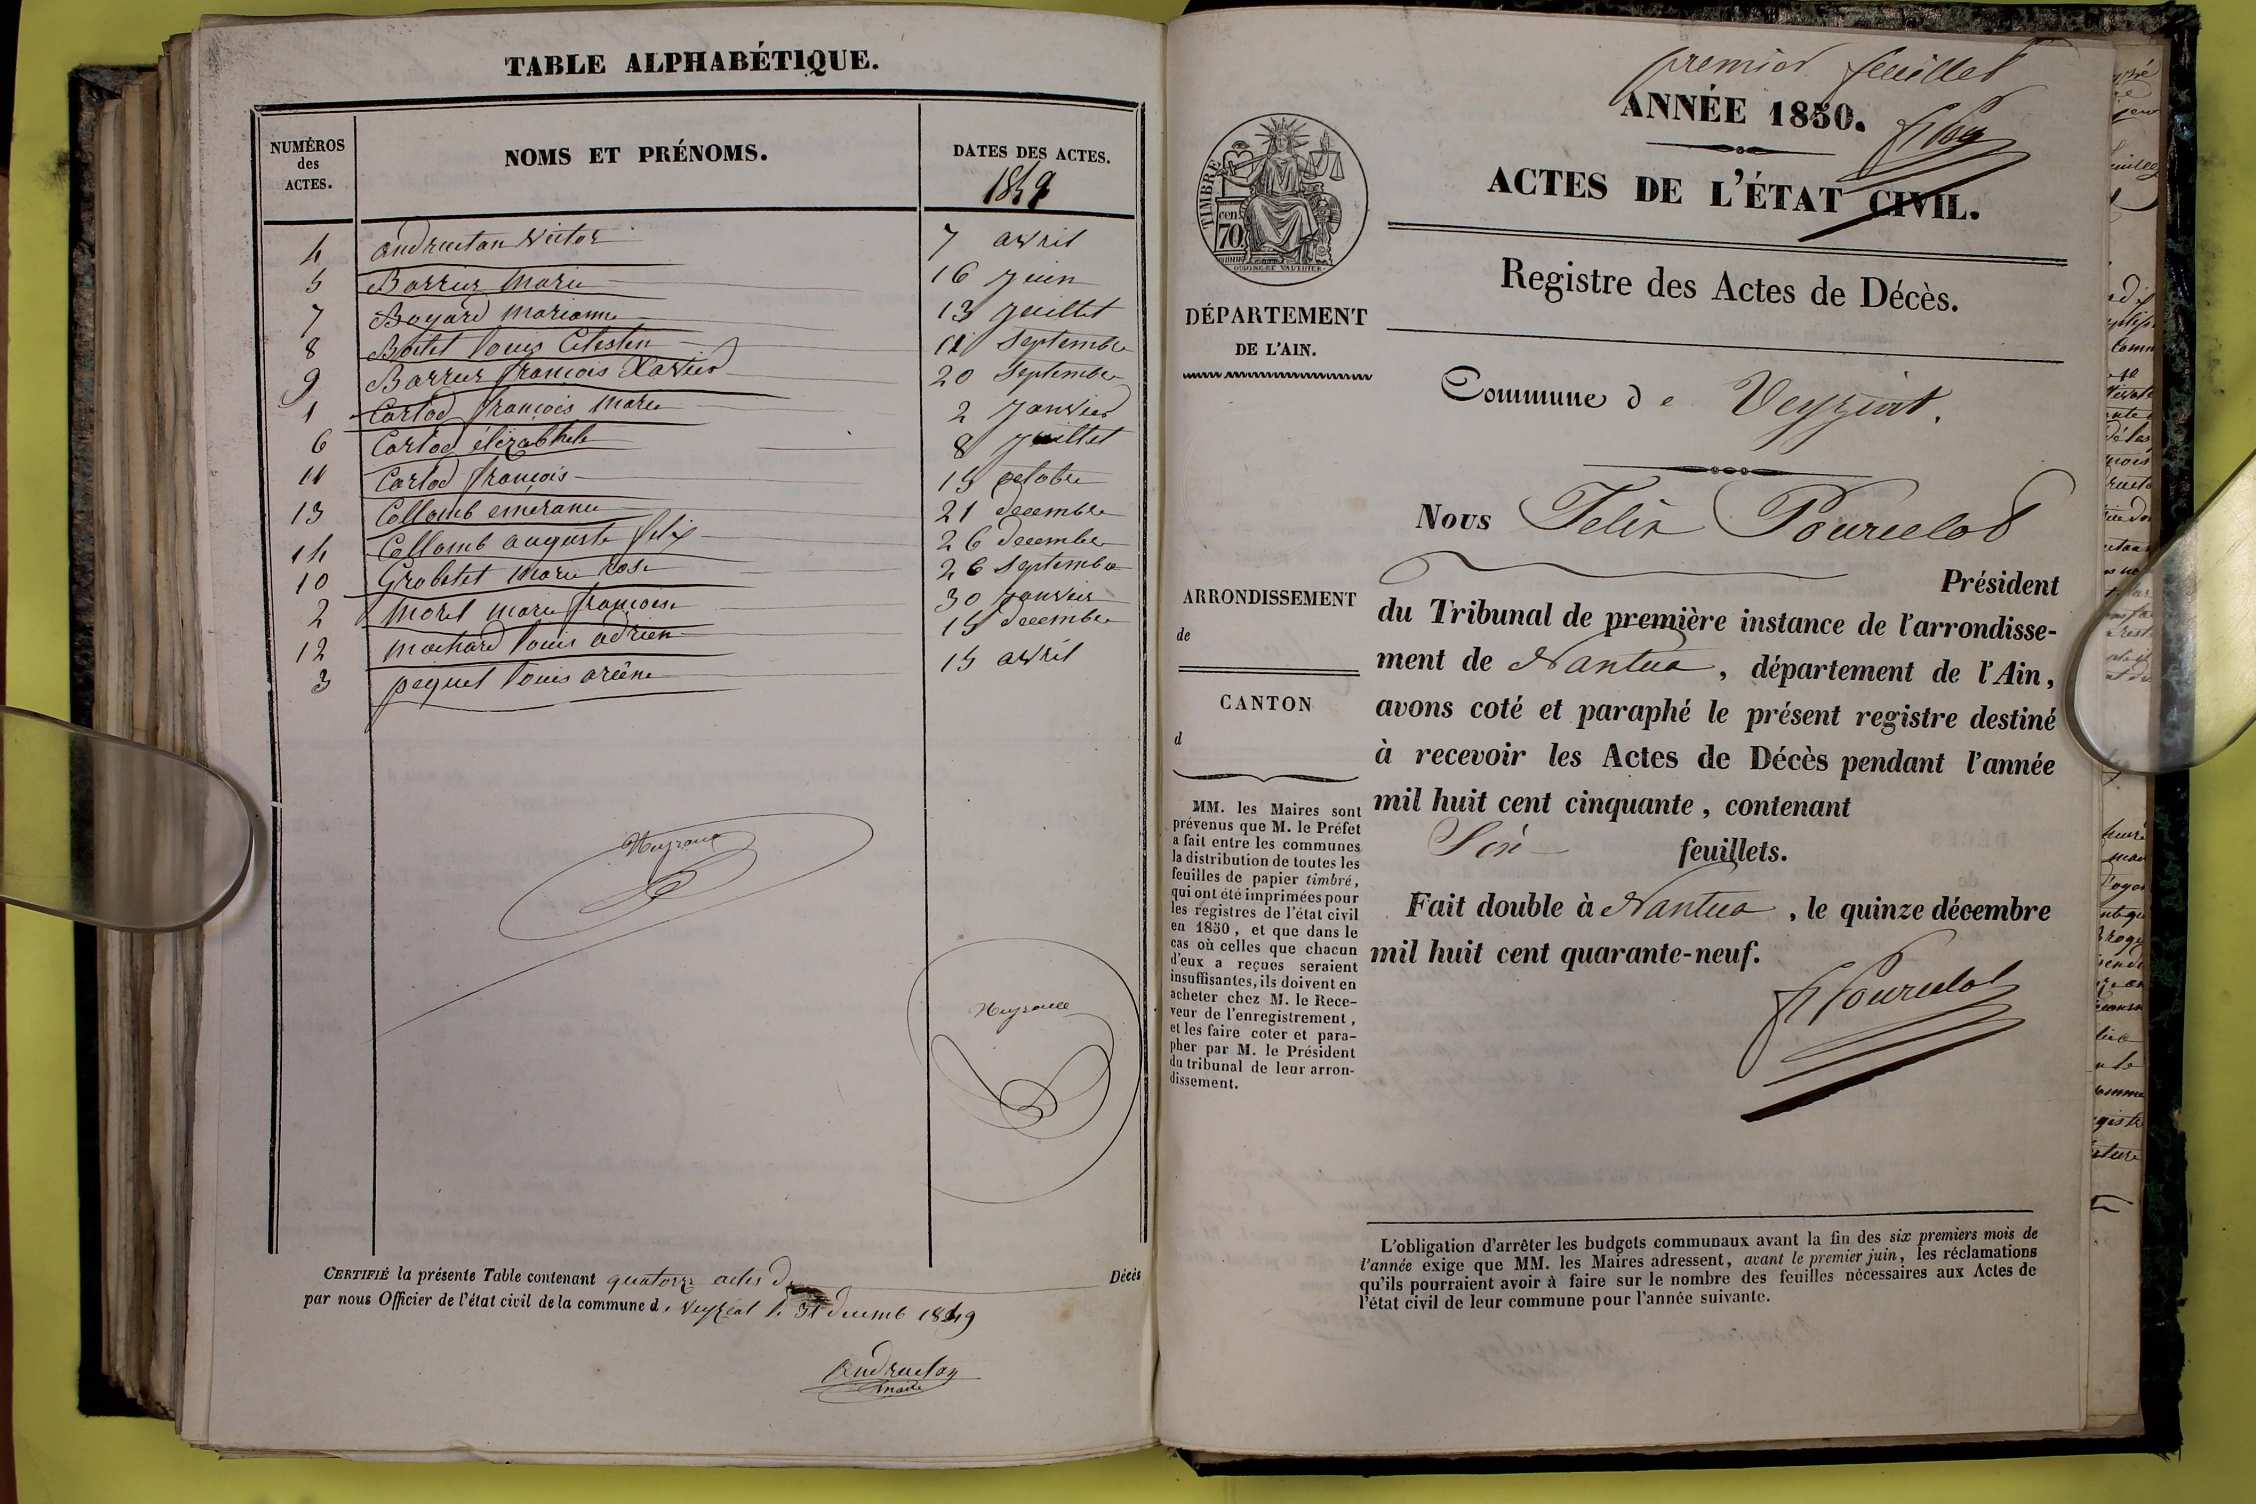 TABLE ALPHABÉTIQUE.
NUMÉROS des ACTES.
NOMS ET PRÉNOMS.
DATES DES ACTES.
1849
4 andruetan Victor 7 avril
5 Barrier Marie 16 Juin
7 Boyard Marianne 13 Juillet
8 Boitet Louis Celestin 11 Septembre
9 Barrier françois Xavier 20 Septembre
1 Carlod françois Marie 2 Janvier
6 Carlod élizabhele 8 Juillet
11 Carlod françois 15 octobre
13 Collomb emerance 21 decembre
14 Collomb auguste felix 26 decembre
10 Grobetet Marie Rose 26 Septembre
2 Morel Marie françoise 30 Janvier
12 Machard Louis adrien 15 decembre
3 pequet Louis arcène 15 avril
CERTIFIÉ la présente Table contenant quatorze actes de Décès
par nous Officier de l'état civil de la commune de Veyziat le 31 decemb 1849
Andruetan
maire
premier feuillet
ANNÉE 1850.
ACTES DE L'ÉTAT CIVIL.
Registre des Actes de Décès.
TIMBRE
cen
70
DÉPARTEMENT
DE L'AIN.
Commune de Veyziat.
Nous Felix Pourcelot
Président
du Tribunal de première instance de l'arrondisse-
ment de Nantua, département de l'Ain,
avons coté et paraphé le présent registre destiné
à recevoir les Actes de Décès pendant l'année
mil huit cent cinquante, contenant
Six feuillets.
Fait double à Nantua, le quinze décembre
mil huit cent quarante-neuf.
F Pourcelot
ARRONDISSEMENT
de
CANTON
d
MM. les Maires sont
prévenus que M. le Préfet
a fait entre les communes
la distribution de toutes les
feuilles de papier timbré,
qui ont été imprimées pour
les registres de l'état civil
en 1850, et que dans le
cas où celles que chacun
d'eux a reçues seraient
insuffisantes, ils doivent en
acheter chez M. le Rece-
veur de l'enregistrement,
et les faire coter et para-
pher par M. le Président
du tribunal de leur arron-
dissement.
L'obligation d'arrêter les budgets communaux avant la fin des six premiers mois de
l'année exige que MM. les Maires adressent, avant le premier juin, les réclamations
qu'ils pourraient avoir à faire sur le nombre des feuilles nécessaires aux Actes de
l'état civil de leur commune pour l'année suivante.